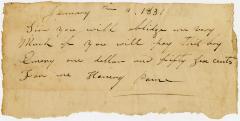 January 4, 1831
Sir you will oblidge me very
Much if you will pay this boy
Emory one dollar and fifty five cents
For me Henry